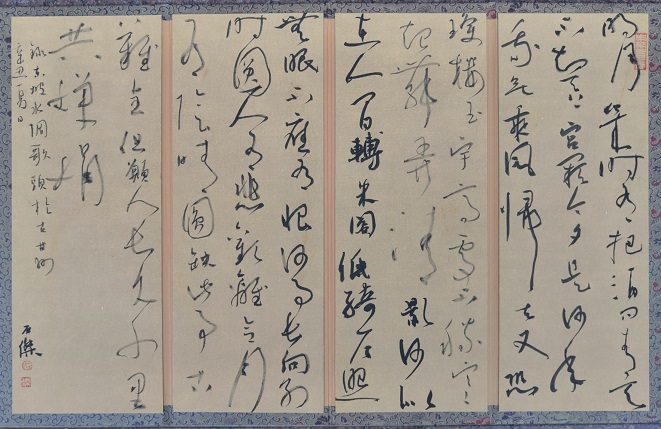 明月幾時有把酒問青天
不知天上宮闕今夕是何年
我欲乘風歸去又恐
瓊樓玉宇高處不勝寒
起舞弄清影何似
在人間轉朱閣低綺戶照
無眠不應有恨何事長向別
時圓人有悲歡離合月
有陰晴圓缺此事古
難全但願人長久千里
共嬋娟
錄東坡水調歌頭於古甘州
辛丑
石傑